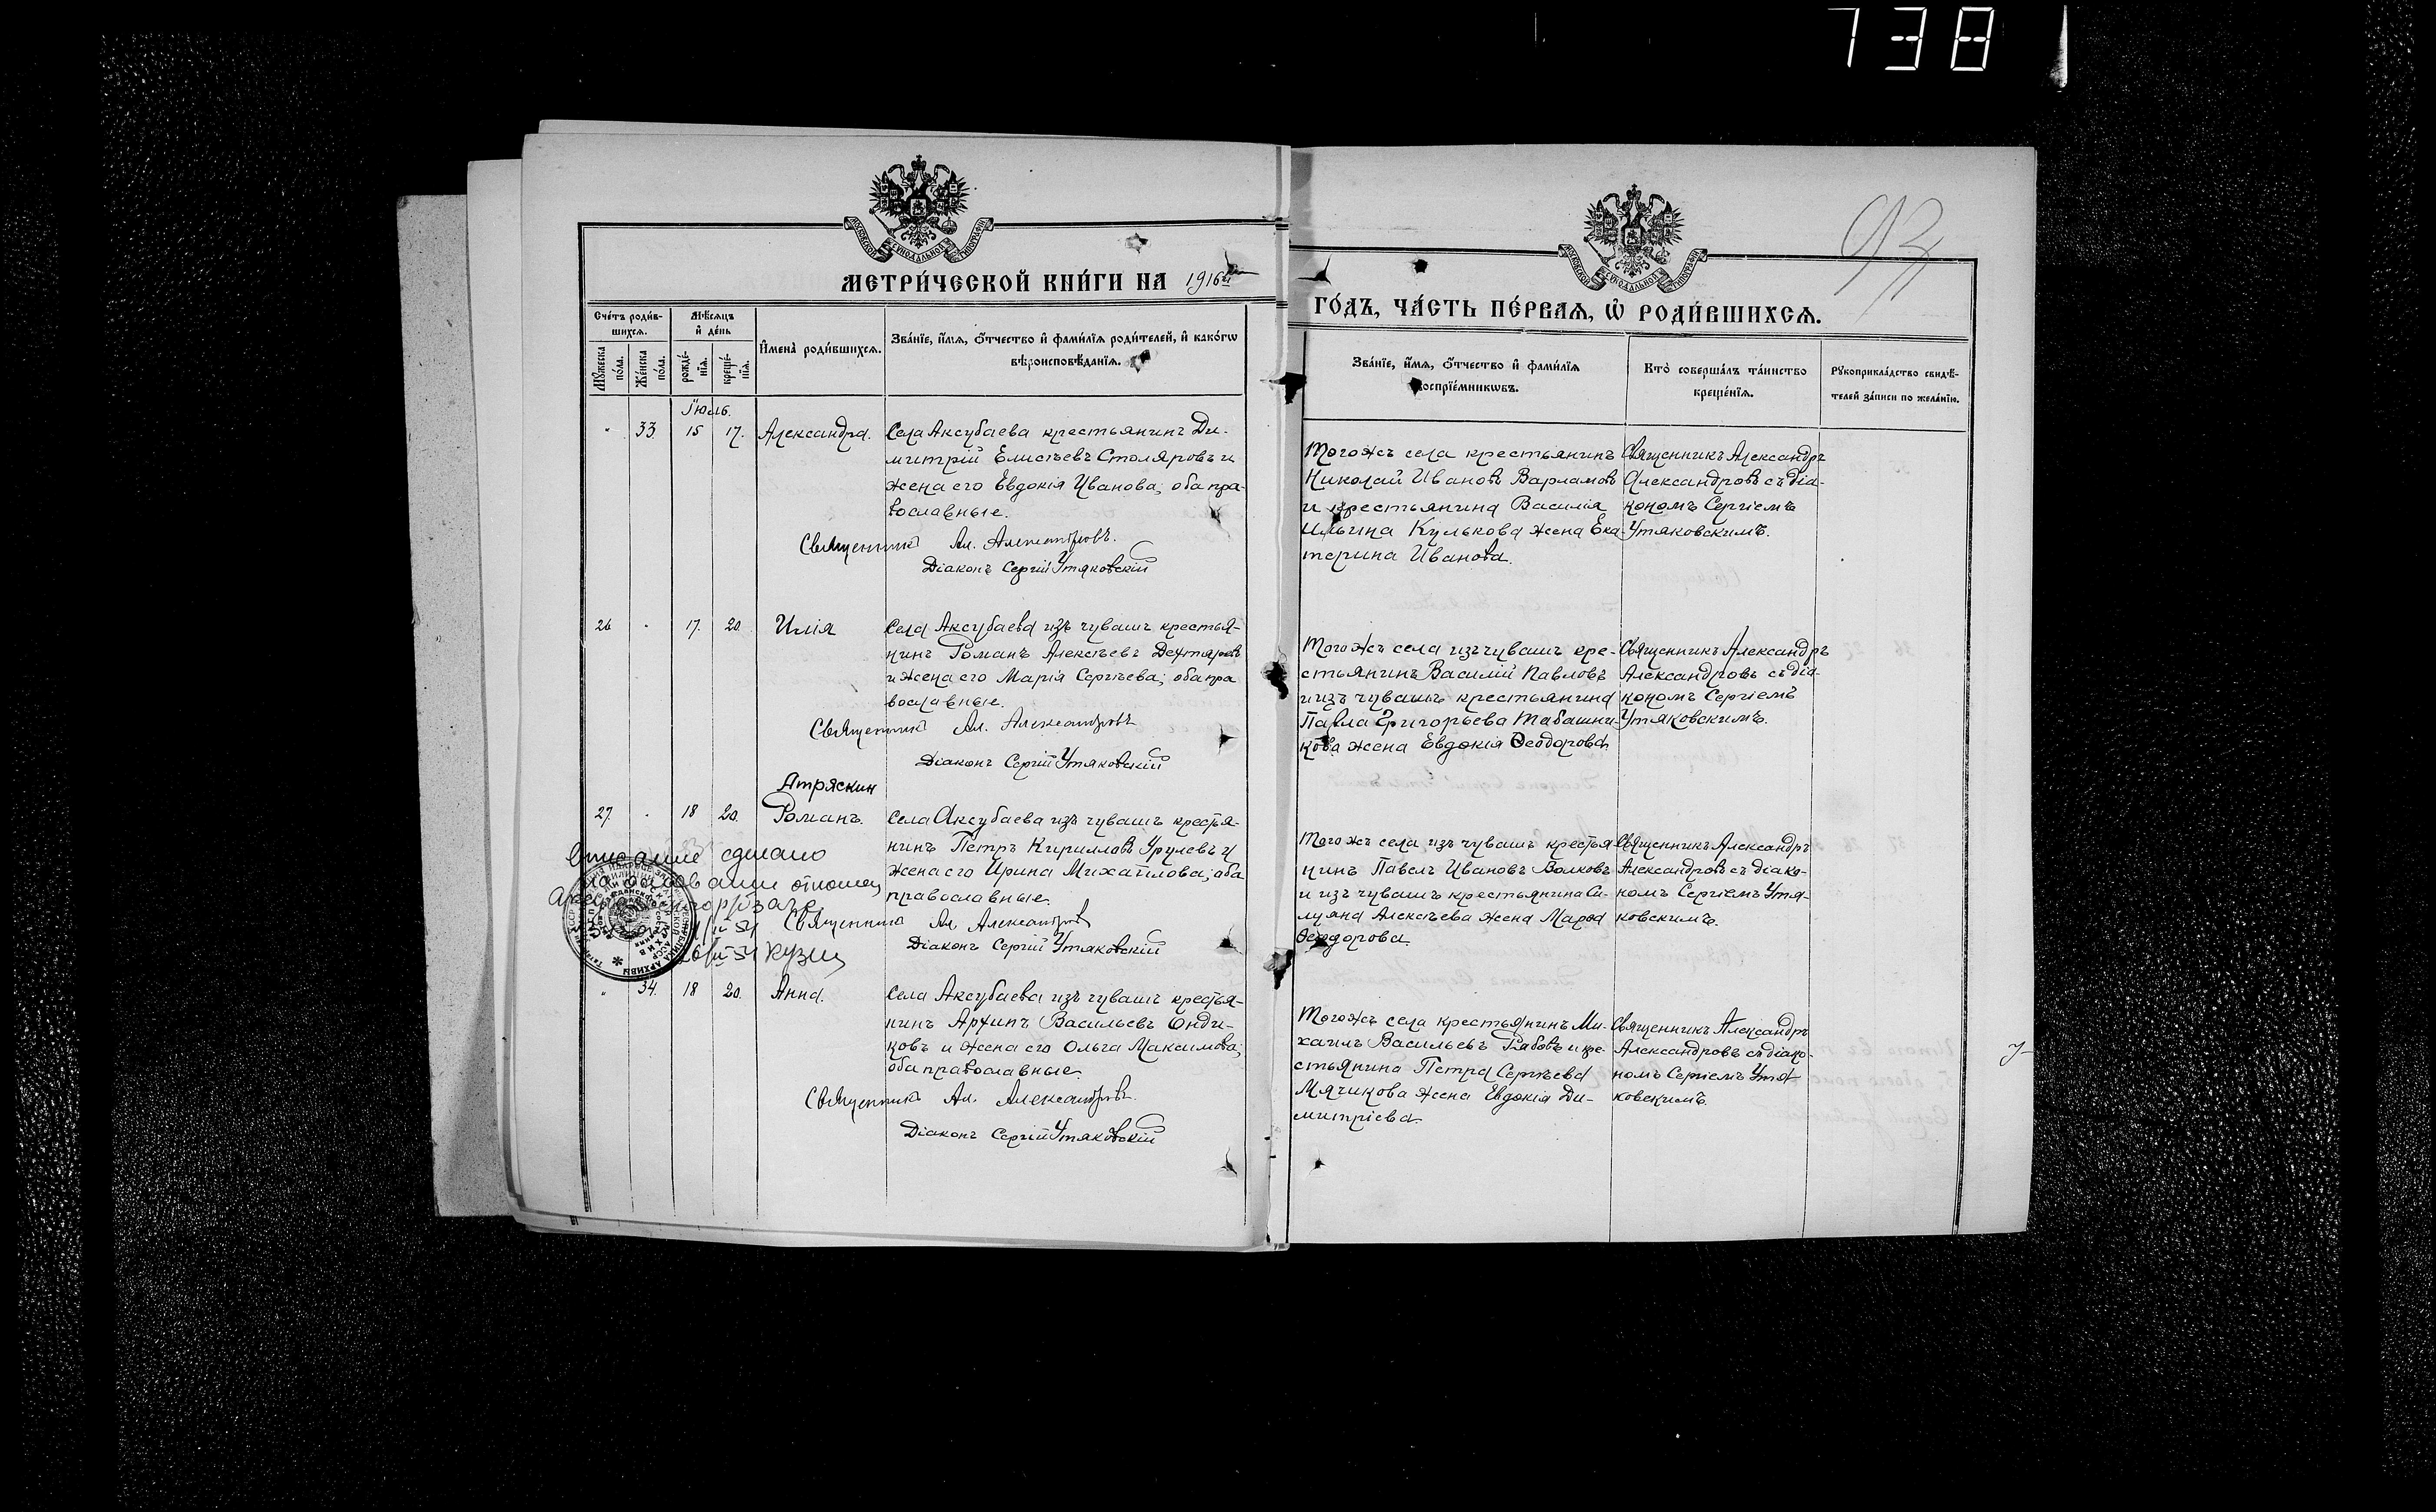 738
93
МЕТРИ́ЧЕСКОЙ КНИ́ГИ НА 1916й
ГО́ДЪ, ЧА́СТЬ ПЕ́РВАЯ, Ѡ҆ РОДИ́ВШИХСЯ.
Сче́тъ роди́в-
шихся.
Мѣ́сяцъ
и҆ де́нь
И҆мена̀ роди́вшихся.
Зва́нїе, и҆́мя, ѻ҆́тчество и҆ фами́лїя роди́телей, и҆ како́гѡ
вѣроисповѣ́данїя.
Мꙋ́жеска
по́ла.
Же́нска
по́ла.
рожде́-
нїя.
креще́-
нїя.
Зва́нїе, и҆́мя, ѻ҆́тчество и҆ фами́лїя
воспрїе́мникѡвъ.
Кто̀ соверша́лъ та́инство
креще́нїя.
Рꙋкоприкла́дство свидѣ́-
телей за́писи по жела́нїю.
Іюль.
" 33. 15 17. Александра. Села Аксубаева крестьянинъ Ди-
митрій Елисѣевъ Столяровъ и
жена его Евдокія Иванова; оба пра-
вославные.
Священникъ Ал. Александровъ.
Діаконъ Сергій Утяковскій
Тогожъ села крестьянинъ
Николай Ивановъ Варламовъ
и крестьянина Василія
Ильина Кулькова жена Ека-
терина Иванова.
Священникъ Александръ
Александровъ съ діа-
кономъ Сергіемъ
Утяковскимъ.
26 " 17. 20. Илія Села Аксубаева изъ чувашъ крестья-
нинъ Романъ Алексѣевъ Дехтяревъ
и жена его Марія Сергѣева; оба пра
вославные.
Священникъ Ал. Александровъ
Діаконъ Сергій Утяковскій
Тогожъ села изъ чувашъ кре-
стьянинъ Василій Павловъ
и изъ чувашъ крестьянина
Павла Григорьева Табашни-
кова жена Евдокія Ѳеодорова
Священникъ Александръ
Александровъ съ діа-
кономъ Сергіемъ
Утяковскимъ.
Атряскин
27. " 18 20. Романъ. Села Аксубаева изъ чувашъ крестья-
нинъ Петръ Кирилловъ Урулевъ и
жена его Ирина Михаилова; оба
православные.
Священникъ Ал. Александровъ
Діаконъ Сергій Утяковскій
сделано
на основании
Тогожъ села изъ чувашъ крестья
нинъ Павелъ Ивановъ Волковъ
и изъ чувашъ крестьянина Си-
луяна Алексѣева жена Марѳа
Ѳеодорова.
Священникъ Александръ
Александровъ съ діако-
номъ Сергіемъ Утя-
ковскимъ.
" 34. 18 20. Анна. Села Аксубаева изъ чувашъ крестья-
нинъ Архипъ Васильевъ Онди-
ковъ и жена его Ольга Максимова;
оба православные.
Священникъ Ал. Александровъ.
Діаконъ Сергій Утяковскій
Тогожъ села крестьянинъ Ми-
хаилъ Васильевъ Рябовъ и кре-
стьянина Петра Сергѣева
Мячикова жена Евдокія Ди-
митріева.
Священникъ Александръ
Александровъ съ діако-
номъ Сергіемъ Утя-
ковскимъ.